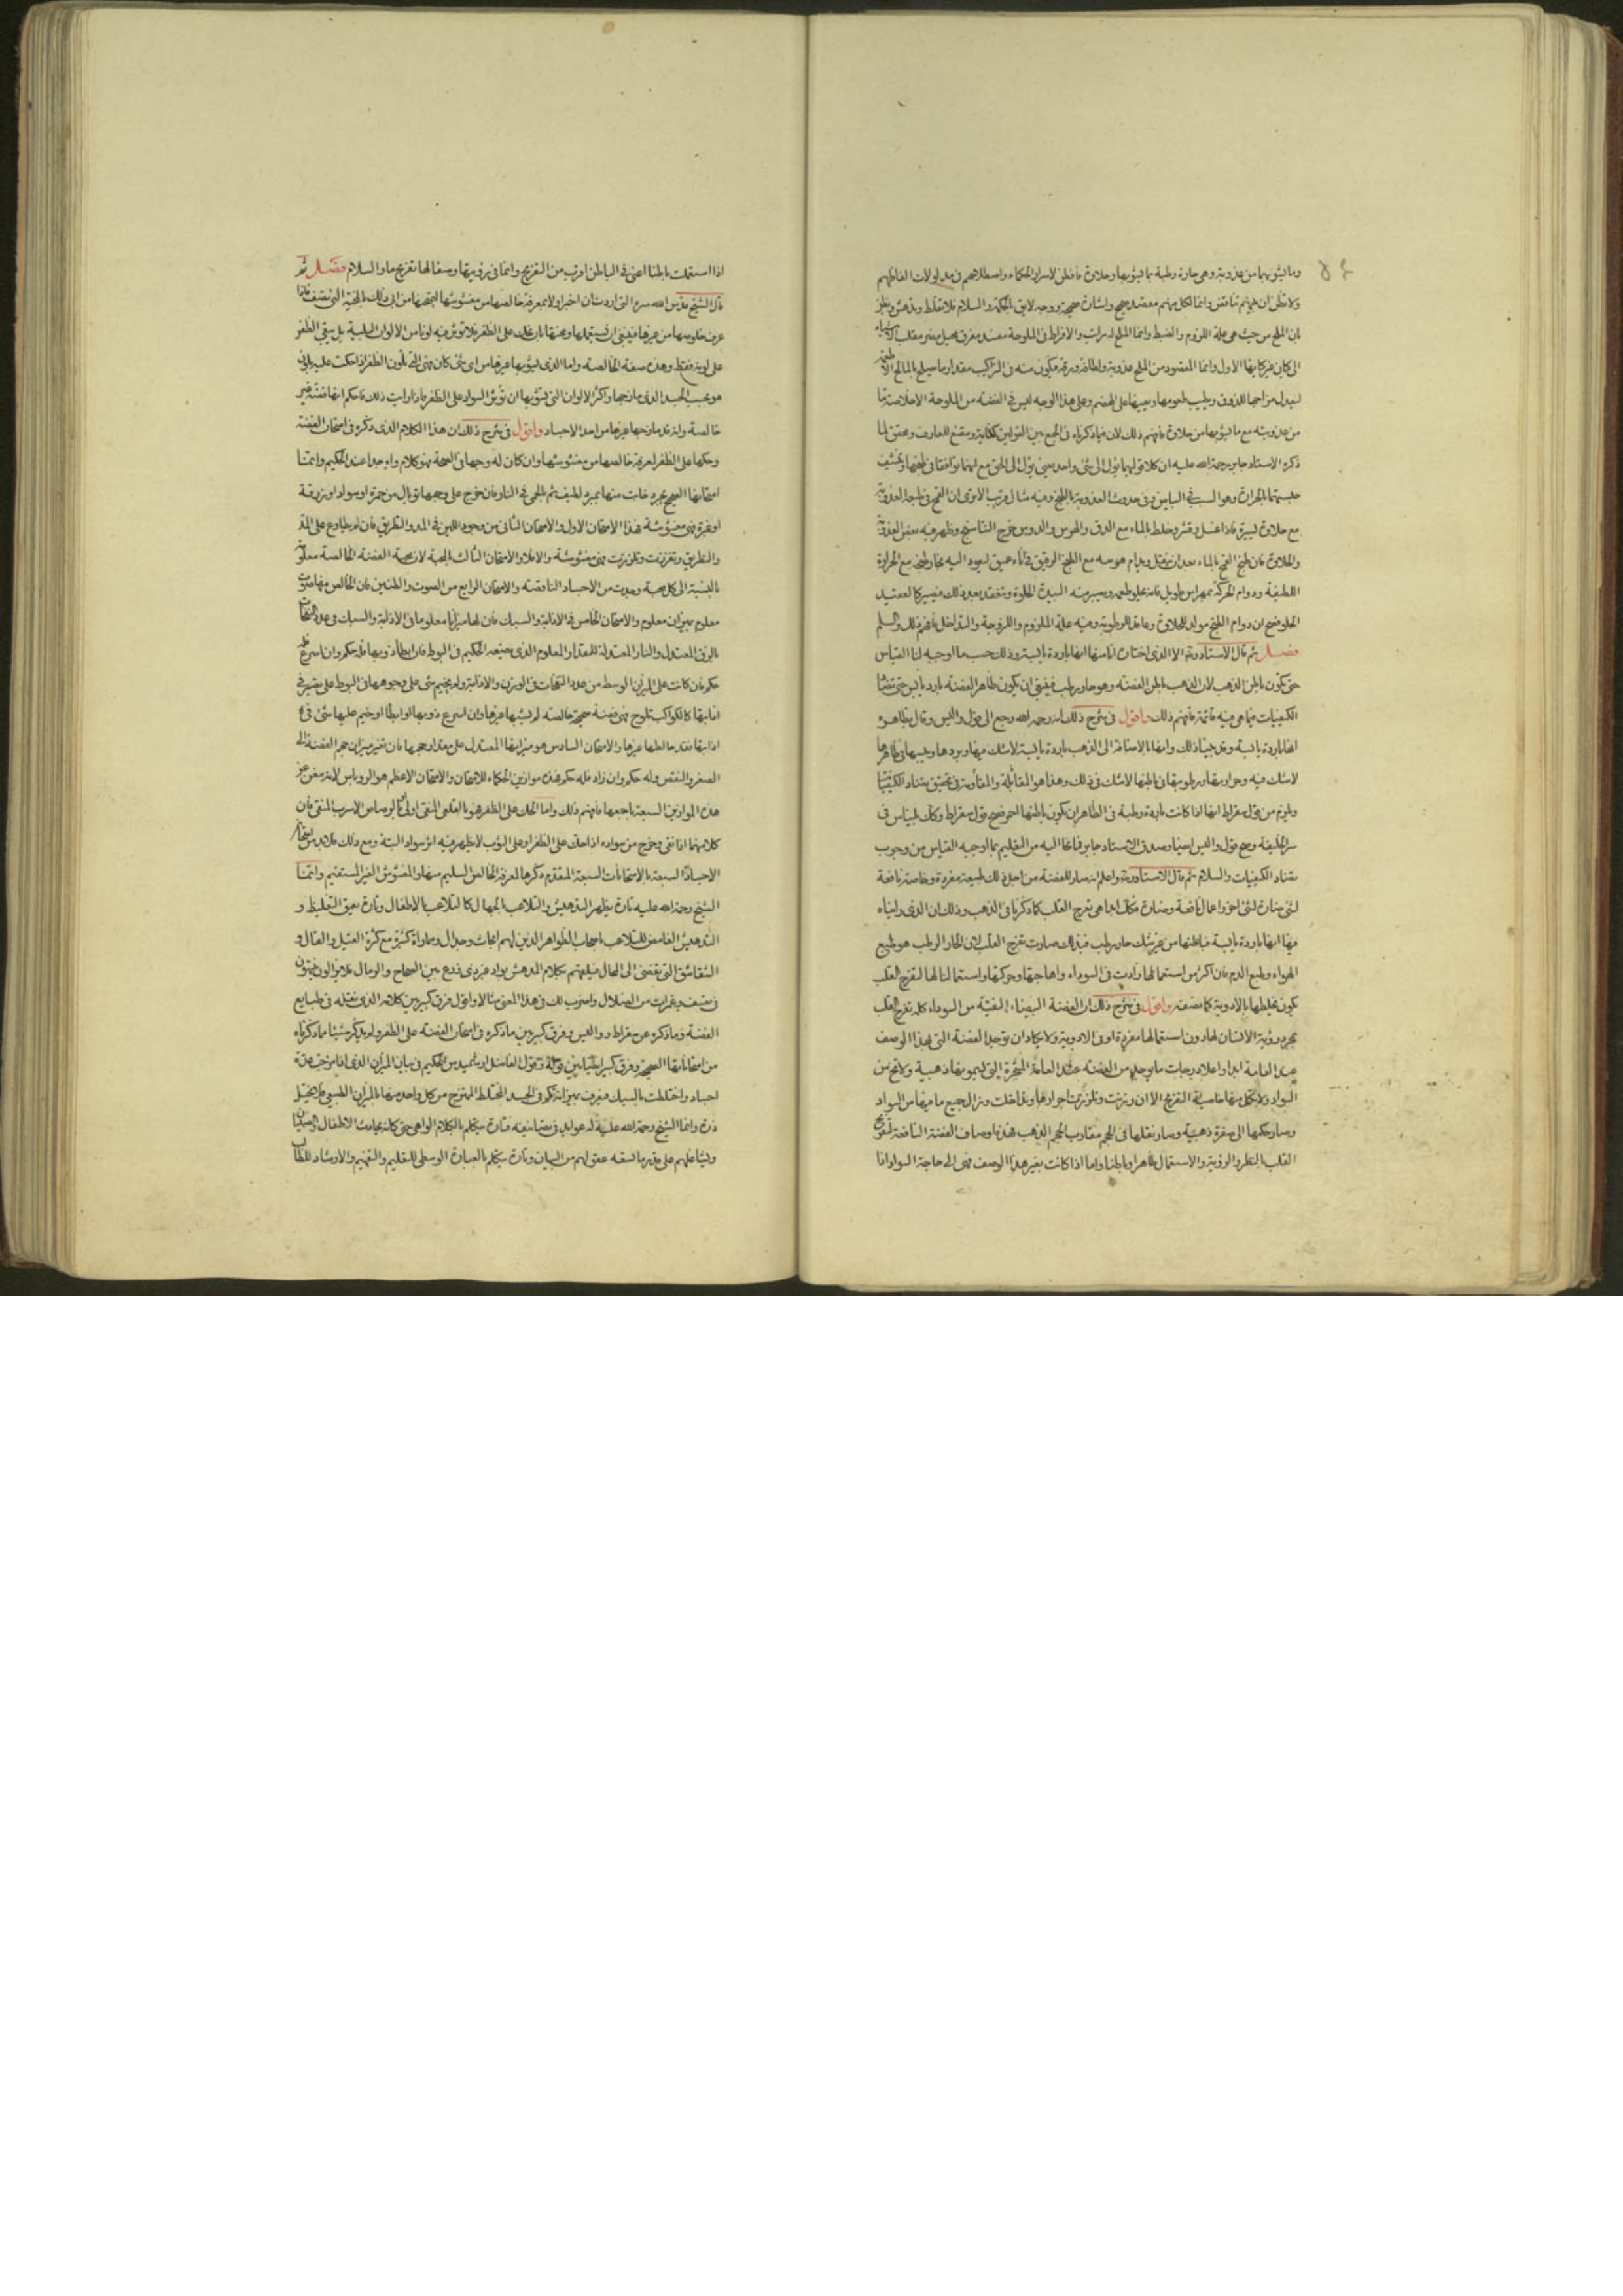 وما يشوبها من عذوبة وهى حارة رطبة بما يشوبها وحلاوة فافطن لاسرار الحكماء واصطلاحهم فى مدلولات الفاظهم
ولا تظن ان بينهم تناقض وانما لكل منهم مقصد صحيح واشارة صحيحة ووجه لايق بالحكمة والسلام فلا تغلط وتدهش وتظن
بان الملح من حيث هى علة اللزوم والضبط وانما الملح له مراتب والافراط فى الملوحة مفسد مفرق محيل مغير مقلب الاشياء
الى كيان غير كيانها الاول وانما المقصود من الملح عذوبة ولطافة ورقة فيكون منه فى التركيب مقدار ما يصلح بالمالح الاطعمة
ليعدل مزاجها للذوق ويطيب طعومها ويعينها على الهضم وعلى هذا الوجه ليس فى الفضة من الملوحة الا خلاصتها
من عذوبته مع ما يشوبها من حلاوة فافهم ذلك لان فيما ذكرناه فى الجمع بين القولين كفاية ومقنع للعارف ومحقق لما
ذكره الاستاد جابر رحمة الله عليه ان كلا قوليهما يؤل الى شئ واحد يعنى يؤل الى الحق مع انهما توافقا فى طبخها وتنشيف
بالحرارة وهو السبب فى البياض وفى حدوث العذوبة بالطبخ وفيه مثال قريب الا ترى ان القمح فى طبعه العذوبة
مع حلاوة يسيرة فاذا غسل وقشر وخلط بالماء مع الدق والهرس والدوس خرج النشا سنج وظهر فيه بعض العذوبة
والحلاوة فان طبخ القمح بالماء بعد ان يقشر ويدام هرسه مع الطبخ الرقيق فى اناء عميق ليعود اليه بخار طبخه مع الحرارة
اللطيفة ودوام الحركة بمهراس طويل فانه يحلو طعمه ويصير منه السيدة الحلوة وتنعقد بعد ذلك فيصير كالعقيد
الحلو فصح ان دوام الطبخ مولد للحلاوة وعاقد للرطوبة وفيه علة الملزوم واللزوجة والتداخل فافهم ذلك والسلم
فصل ثم قال الاستاد ره الا الذى اختاره اناسها انها باردة يابسة وذلك حسب ما اوجبه لنا القياس
حتى يكون باطن الذهب لان الذهب باطن الفضة وهو حار رطب فينبغى ان يكون ظاهر الفضة بارد يابس حتى تتضاد
الكيفيات فيما هى فيه قائمة فافهم ذلك واقول فى شرح ذلك انه رحمه الله رجع الى قول واليس وقال بظاهره
انها باردة يابسة وقد بينا ذلك وانها بالاضافة الى الذهب باردة يابسة لا شك فيها وبردها ويبسها فى ظاهرها
لا شك فيه وحرارتها ورطوبتها فى باطنها لا شك فى ذلك وهذا هو المقابلة والمقاومة فى تحقيق بتضاد الكيفيات
ويلزم من قول سقراط انها اذا كانت باردة رطبة فى الظاهر ان يكون باطنها فصح قول سقراط وكان بليناس فى
سر الخليقة وصح قول واليس ايضا وصدق الاستاد جابر فانما اليه من التعليم بما اوجبه القياس من وجوب
بتضاد الكيفيات والسلام ثم قال الاستاد ره واعلم انه صار للفضة من اجل ذلك طبيعة مفردة وخاصة نافعة
لشئ ضارة لشئ اخر واعمال نافعة وضارة فكان انما هى تفرح القلب كما ذكرنا فى الذهب وذلك ان الذى رايناه
فيها انها باردة يابسة فباطنها من غير شك حار رطب فبذلك صارت تفرح القلب لان الحار الرطب هو طبع
الهواء وطبع الدم فان اكثر من استعمالها زادت فى السوداء وهاجتها وحركتها واستعمالنا لها لتفرح القلب
يكون بخلطها بالادوية كما نصفه واقول فى شرح ذلك ان الفضة البيضاء النقية من السوداء كله تفرح القلب
بمجرد رؤية الانسان لها دون استعمالها مفردة او فى الادوية ولا يكاد ان توجد الفضة التى بهذا الوصف
عند العامة ابدا واعلا درجات ما يوجد من الفضة عند العامة المحمرة التى ليموتها ذهبية ولا تخ من
السواد ولا يكمل منها خاصية التفريح الا ان رزنت وتلززت اجزاؤها وتداخلت وزال جميع ما فيها من السواد
وصار حكمها الى صفرة ذهبية وصار ثقلها فى الحجم مقارب لحجم الذهب فهذه اوصاف الفضة النافعة لتفريح
القلب بالنظر والرؤية والاستعمال ظاهرا وباطنا واما اذا كانت بغير هذا الوصف فهى الى حاجة السواد اذا
اذا استعملت باطنا اعنى فى الباطن اقرب من التفريح وانما فى رؤيتها وصفائها تفريح ما والسلام فصل ثم
قال الشيخ قدس الله سره التى اردت ان اخبر اولا بمعرفة خالصها من مغشوشها لتمتحنها من اى ذلك بالمحنة التى نصف فاذا
عرف خلوصها من غيرها فينبغى ان يستعملها ومحنتها بان تحك على الظفر فلا تؤثر فيه لونا من الالوان البتة بل يبقى الظفر
على لونه فقط وهذه صفة الخالصة واما الذى يشوبها غيرها من اى شئ كان فهى التى تلون الظفر اذا حكت عليه بلون
هو بحسب الجسد الذى مازجها واكثر الالوان التى يشوبها ان تؤثر السواد على الظفر فاذا رايت ذلك فاحكم انها فضة غير
خالصة وانه قد مازجها غيرها من احد الاجساد واقول فى شرح ذلك ان هذا الكلام الذى ذكره فى امتحان الفضة
وحكها على الظفر لمعرفة خالصها من مغشوشها وان كان له وجها فى الصحة فهو كلام عند الحكيم وانما
امتحانها الصحيح بمبرد لطيف ثم بالحمى فى النار فان خرج على وجهها توبال من حمرة او سواد او زرقة
او غبرة فهى مغشوشة فهذا الامتحان الاول والامتحان الثانى من وجود اللين فى المد والتطريق فان لم يطاوع على المد
والتطريق وتفززت وتلززت فهى مغشوشة والا فلا والامتحان الثالث بالمحبة لان محبة الفضة الخالصة معلومة
بالنسبة الى كل محبة وجدت من الاجساد الناقصة والامتحان الرابع من الصوت والطنين فان الخالص منها صوت
معلوم بميزان معلوم والامتحان الخامس فى الاذابة والسبك فان لها ميزانا معلوما فى الاذابة والسبك فى عدد النفخات
بالزق المعتدل والنار المعتدلة للمقدار المعلوم الذى يضعه الحكيم فى البوط فان ابطأ ذوبها فله حكم وان اسرع فله
حكم فان كانت على الميزان الوسط من عدد النفخات فى الوزن والاذابة ولم يخيم شئ على وجهها فى البوط على بصير فى
اذابتها كالكواكب تلوح فهى فضة صحيحة خالصة لم يشبها غيرها وان اسرع ذوبها او ابطأ او خيم عليها شئ فى
اذابتها فقد خالطها غيرها والامتحان السادس هو ميزانها المعتدل على مقدار حجمها فان تغير ميزان حجم الفضة الى
الصغر والنقص وله حكم وان زاد فله حكم فهذه موازين الحكماء للامتحان والامتحان الاعظم هو الروباس لانه مغن عن
هذه الموازين السبعة باجمعها فافهم ذلك واما الحك على الظفر فهو بالقلعى المنقى اولى ثم بالرصاص الاسرب المنقى فان
كلاهما اذا نقى وخرج من سواده اذا حك على الظفر او على الثوب لا يظهر فيه اثر سواد البتة ومع ذلك فلا بد من امتحان
الاجساد السبعة بالامتحانات السبعة المقدم ذكرها لمعرفة الخالص السليم منها والمغشوش الغير المستقيم وانما
الشيخ رحمة الله عليه تارة يظهر التدهيش والتلاعب بالجهال كالتلاعب بالاطفال وتارة يعمق التغليظ و
التدهيش الغامض للتلاعب باصحاب الظواهر الذين لهم ابحاث وجدال ومماراة كثيرة مع كثرة القيل والقال و
الشقاشق التى تفضى الى المحال فيلقيهم بكلام المدهش بواد غير ذى زرع بين الصحاح والرمال فلا يزالون يتيهون
فى وغمرات من الضلال واضرب لك فى هذا المعنى مثالا واقول فرق كبير بين كلامه الذى نقله فى طبايع
الفضة وما ذكره عن سقراط وواليس وفرق كبير بين ما ذكره فى امتحان الفضة على الظفر ولم يذكر شيئا مما ذكرناه
من امتحاناتها الصحيحة وفرق كبير ايضا بين قوله وقول الفاضل ارشميدس الحكيم فى بيان الميزان الذى اذا مزجت عدة
اجساد واختلطت بالسبك فيعرف بميزانه كم فى الجسد المختلط الممتزج من كل واحد منها بالميزان الطبيعى فلا يختل
ذرة وانما الشيخ رحمة الله عليه له عوايد فى تصانيفه فتارة يتكلم بالكلام الواهى حتى كانه يحادث الاطفال والصبيان
ويشاغلهم على قدر ما تسعه عقولهم من البيان وتارة يتكلم بالعبارة الوسطى للتعليم والتفهيم والارشاد للطالب